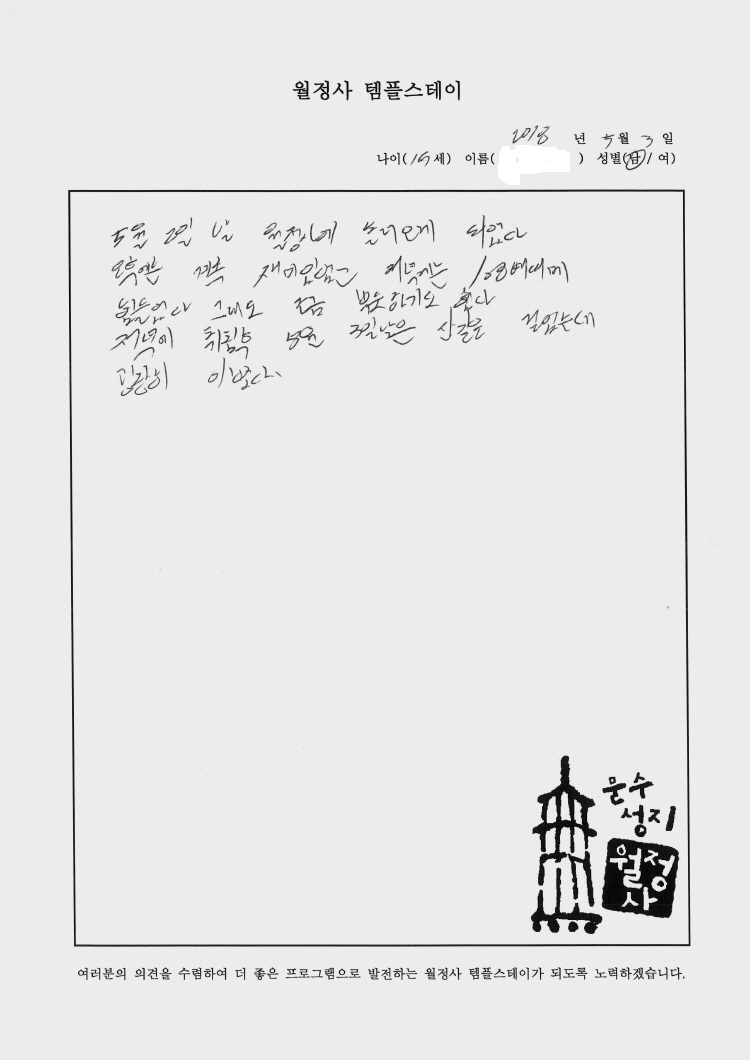 월정사 템플스테이
2018 년 5월 3일
나이(15세) 이름( ) 성별(남/여)
5월 2일 날 월정사에 놀러오게 되었다
오후에는 제복 재미있었고 저녁에는 108배때메
힘들었다 그래도 조금 뿌듯하기도 했다
저녁에 취침후 5월 3일날은 산길을 걸었는데
굉장히 이뻤다.
문수
성지
월정
사
여러분의 의견을 수렴하여 더 좋은 프로그램으로 발전하는 월정사 템플스테이가 되도록 노력하겠습니다.